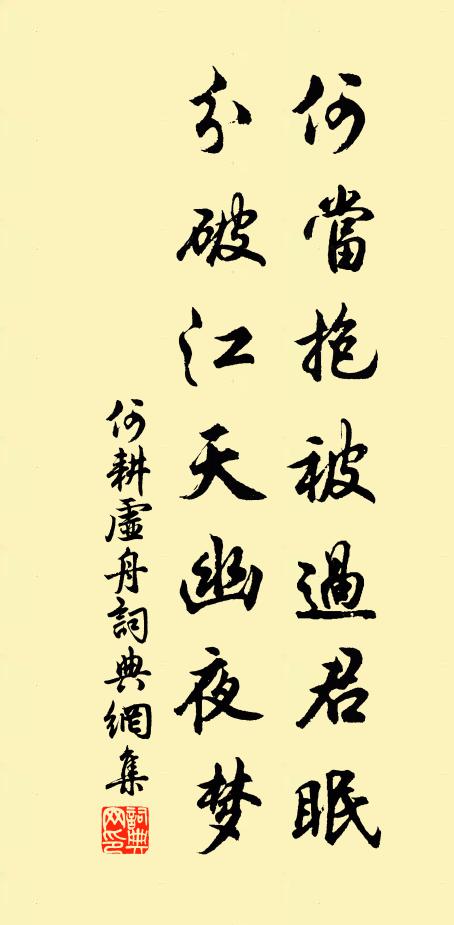 何當抱被過君眠
分破江天幽夜梦
何耕虛舟詞典網集
詞典
网印